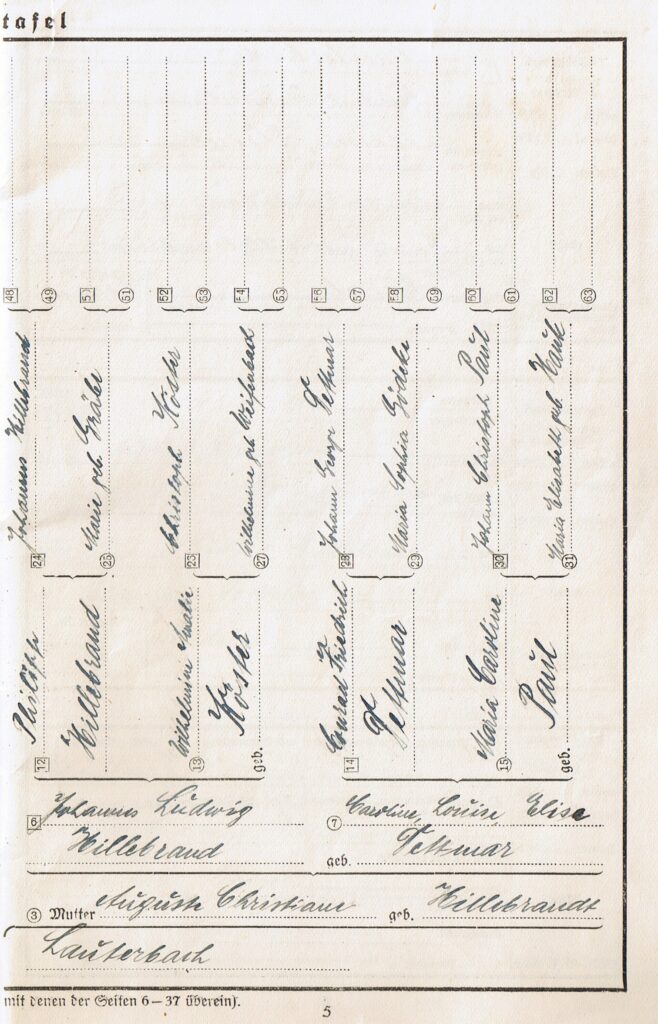 tafel
48
49
50
51
52
53
54
55
56
57
58
59
60
61
62
63
Johannes Hillebrand
Marie geb. Gräbe
Christoph Köster
Wilhelmine geb. Weifenbach
Johann George Dettmar
Maria Sophia Gödeke
Johann Christoph Paul
Maria Elisabeth geb. Hauk
24
25
26
27
28
29
30
31
Philipp
Hillebrand
Wilhelmine Amalie
Köster
Conrad Friedrich
Dettmar
Maria Caroline
Paul
12
13
geb.
14
15
geb.
6 Johannes Ludwig
Hillebrand
7 Caroline, Louise, Elise
geb. Dettmar
3 Mutter Auguste Christiane geb. Hillebrandt
Lauterbach
mit denen der Seiten 6–37 überein).
5